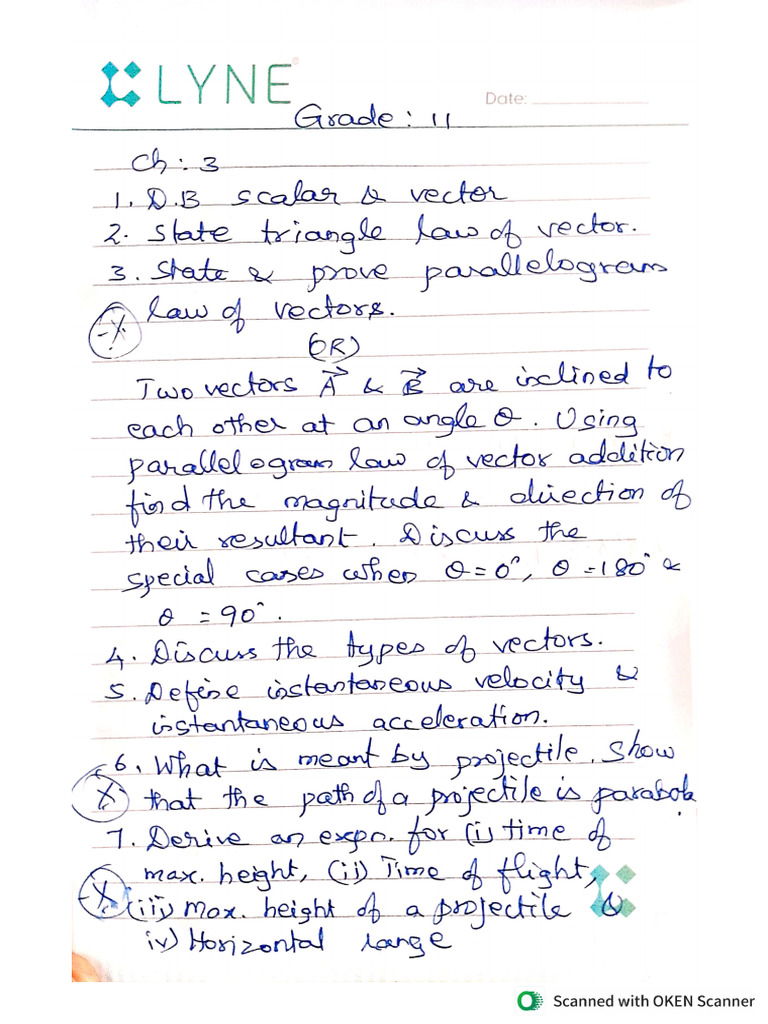 LYNE
Date:
Grade: 11
Ch: 3
1. D.B scalar & vector
2. State triangle law of vector.
3. State & prove parallelogram
law of vectors.
(OR)
Two vectors A⃗ & B⃗ are inclined to
each other at an angle θ. Using
parallelogram law of vector addition
find the magnitude & direction of
their resultant. Discuss the
special cases when θ = 0°, θ = 180° &
θ = 90°.
4. Discuss the types of vectors.
5. Define instantaneous velocity &
instantaneous acceleration.
6. What is meant by projectile. Show
that the path of a projectile is parabola.
7. Derive an expn. for (i) time of
max. height, (ii) Time of flight,
(iii) max. height of a projectile &
iv) Horizontal range
Scanned with OKEN Scanner